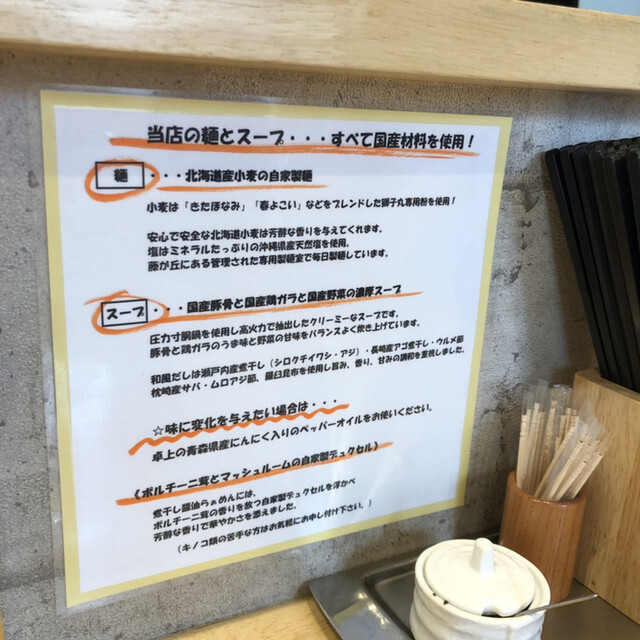 当店の麺とスープ・・・すべて国産材料を使用！
麺・・・北海道産小麦の自家製麺
小麦は「きたほなみ」「春よこい」などをブレンドした獅子丸専用粉を使用！
安心で安全な北海道小麦は芳醇な香りを与えてくれます。
塩はミネラルたっぷりの沖縄県産天然塩を使用。
藤が丘にある管理された専用製麺室で毎日製麺しています。
スープ・・・国産豚骨と国産鶏ガラと国産野菜の濃厚スープ
圧力寸胴鍋を使用し高火力で抽出したクリーミーなスープです。
豚骨と鶏ガラのうま味と野菜の甘味をバランスよく炊き上げています。
和風だしは瀬戸内産煮干し（シロクチイワシ・アジ）・長崎産アゴ煮干し・ウルメ節
枕崎産サバ・ムロアジ節、羅臼昆布を使用し旨み、香り、甘みの調和を重視しました。
☆味に変化を与えたい場合は・・・
卓上の青森県産にんにく入りのペッパーオイルをお使いください。
《ポルチーニ茸とマッシュルームの自家製デュクセル》
煮干し醤油らぁめんには、
ポルチーニ茸の香りを放つ自家製デュクセルを浮かべ
芳醇な香りで華やかさを添えました。
（キノコ類の苦手な方はお気軽にお申し付け下さい。）